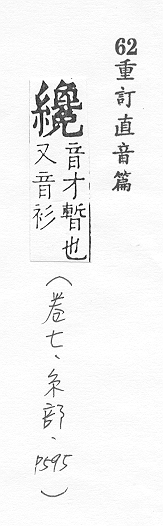 62重訂直音篇
纔 音才暫也
又音衫
（卷七、糸部、P595）